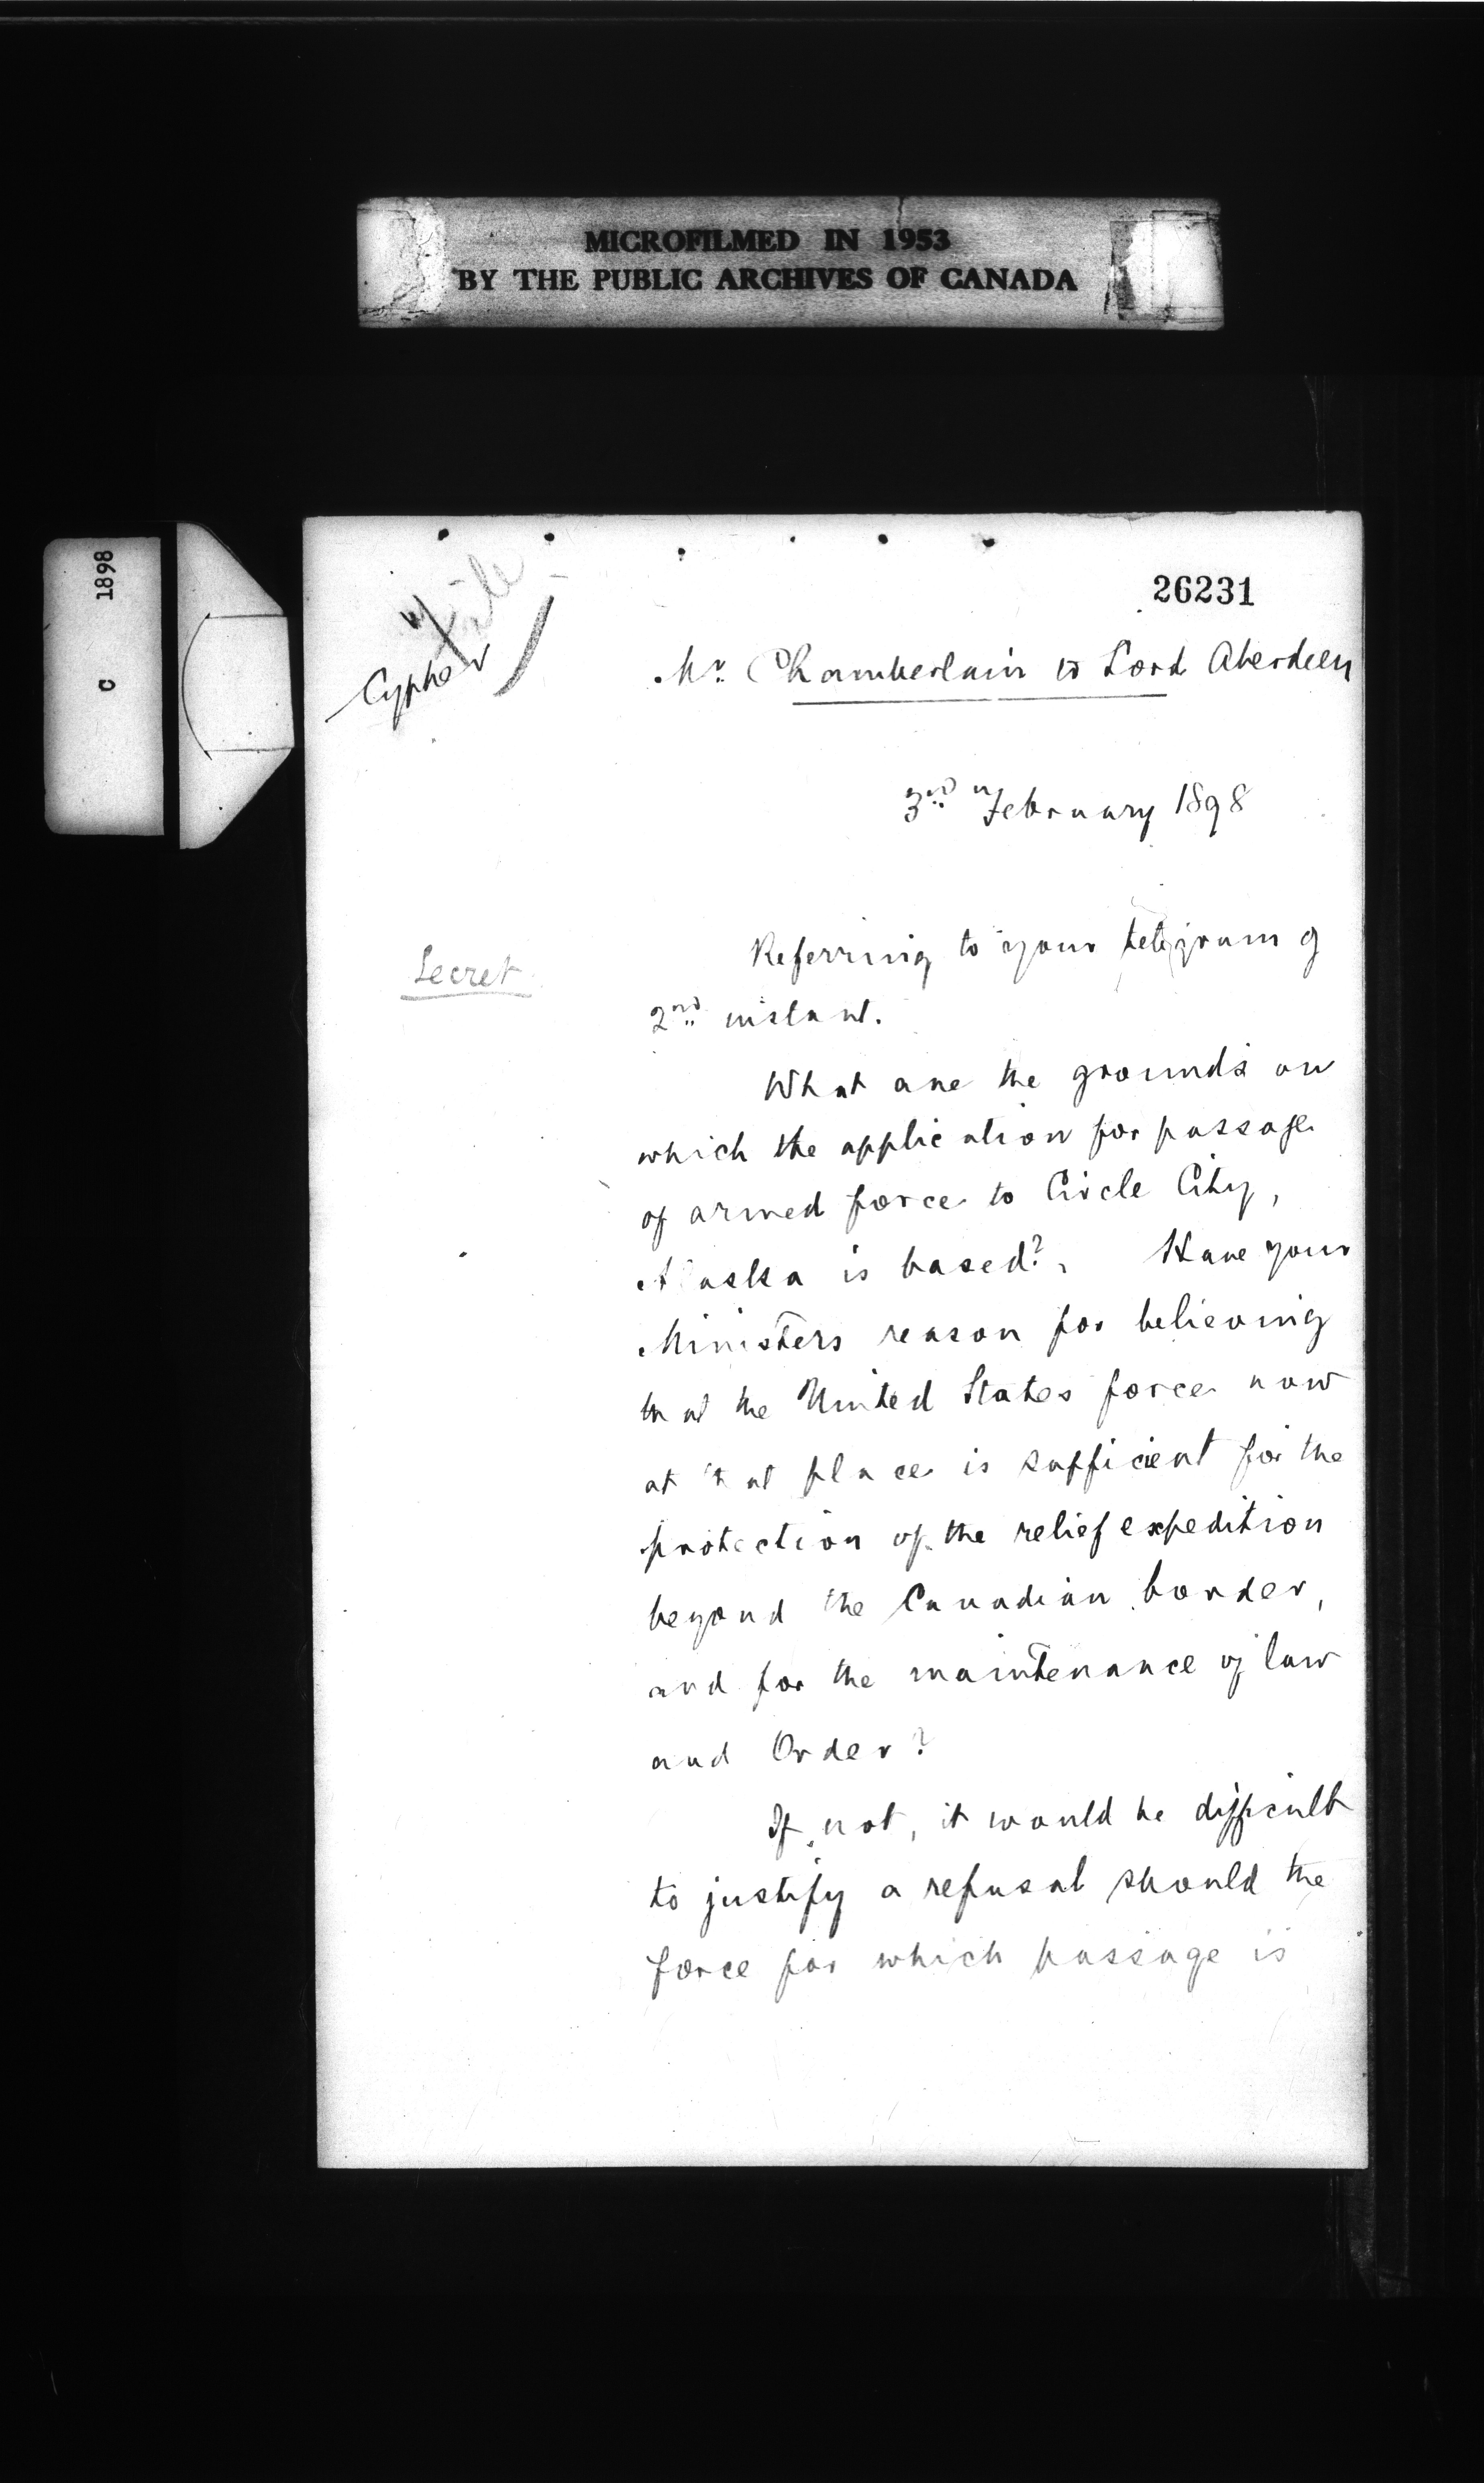 MICROFILMED IN 1953
BY THE PUBLIC ARCHIVES OF CANADA
C 1898
26231
File
Cypher
Mr. Chamberlain to Lord Aberdeen
3rd February 1898
Secret
Referring to your telegram of
2nd instant.
What are the grounds on
which the application for passage
of armed force to Circle City,
Alaska is based? Have your
Ministers reason for believing
that the United States force now
at that place is sufficient for the
protection of the relief expedition
beyond the Canadian border,
and for the maintenance of law
and Order?
If not, it would be difficult
to justify a refusal should the
force for which passage is